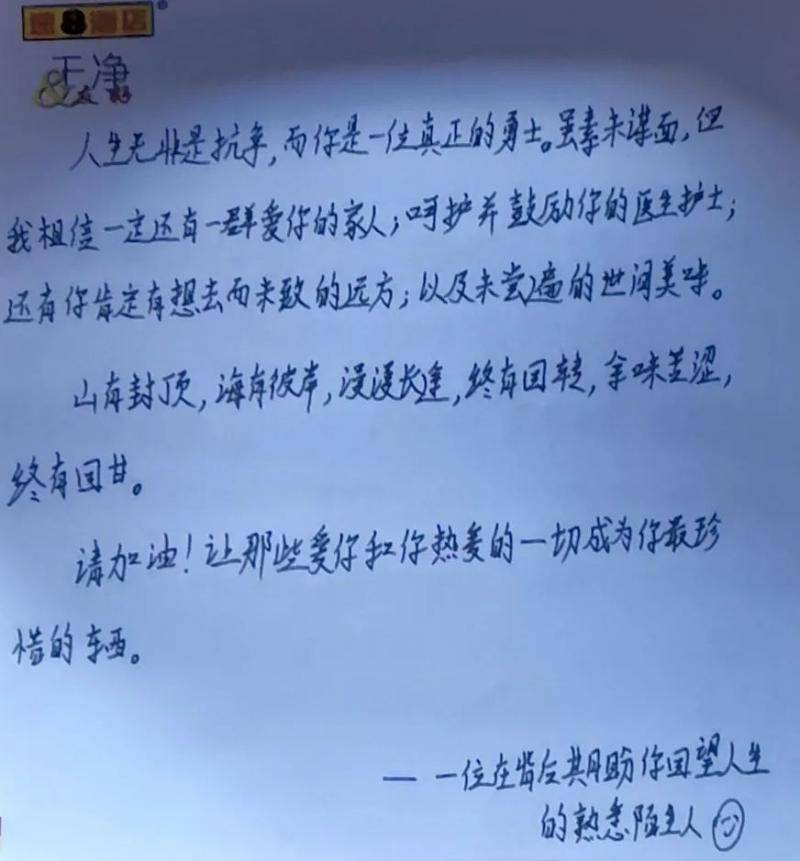 速8酒店
干净
&友好
人生无非是抗争,而你是一位真正的勇士。虽素未谋面,但
我相信一定还有一群爱你的家人;呵护并鼓励你的医生护士;
还有你肯定有想去而未致的远方;以及未尝遍的世间美味。
山有封顶,海有彼岸,漫漫长途,终有回转,余味苦涩,
终有回甘。
请加油!让那些爱你和你热爱的一切成为你最珍
惜的东西。
— 一位在背后共同盼你回望人生
的熟悉陌生人